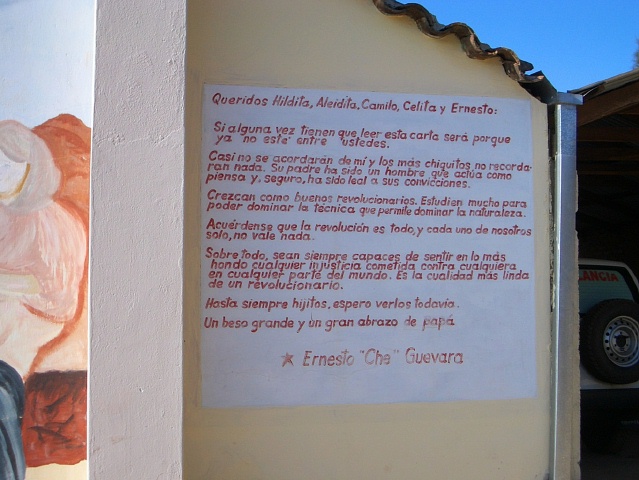 Queridos Hildita, Aleidita, Camilo, Celita y Ernesto:
Si alguna vez tienen que leer esta carta será porque
ya no esté entre ustedes.
Casi no se acordarán de mí y los más chiquitos no recorda-
ran nada. Su padre ha sido un hombre que actúa como
piensa y, seguro, ha sido leal a sus convicciones.
Crezcan como buenos revolucionarios. Estudien mucho para
poder dominar la técnica que permite dominar la naturaleza.
Acuérdense que la revolución es todo, y cada uno de nosotros
solo, no vale nada.
Sobre todo, sean siempre capaces de sentir en lo más
hondo cualquier injusticia cometida contra cualquiera
en cualquier parte del mundo. Es la cualidad más linda
de un revolucionario.
Hasta siempre hijitos, espero verlos todavía.
Un beso grande y un gran abrazo de papá
Ernesto "Che" Guevara
LANCIA